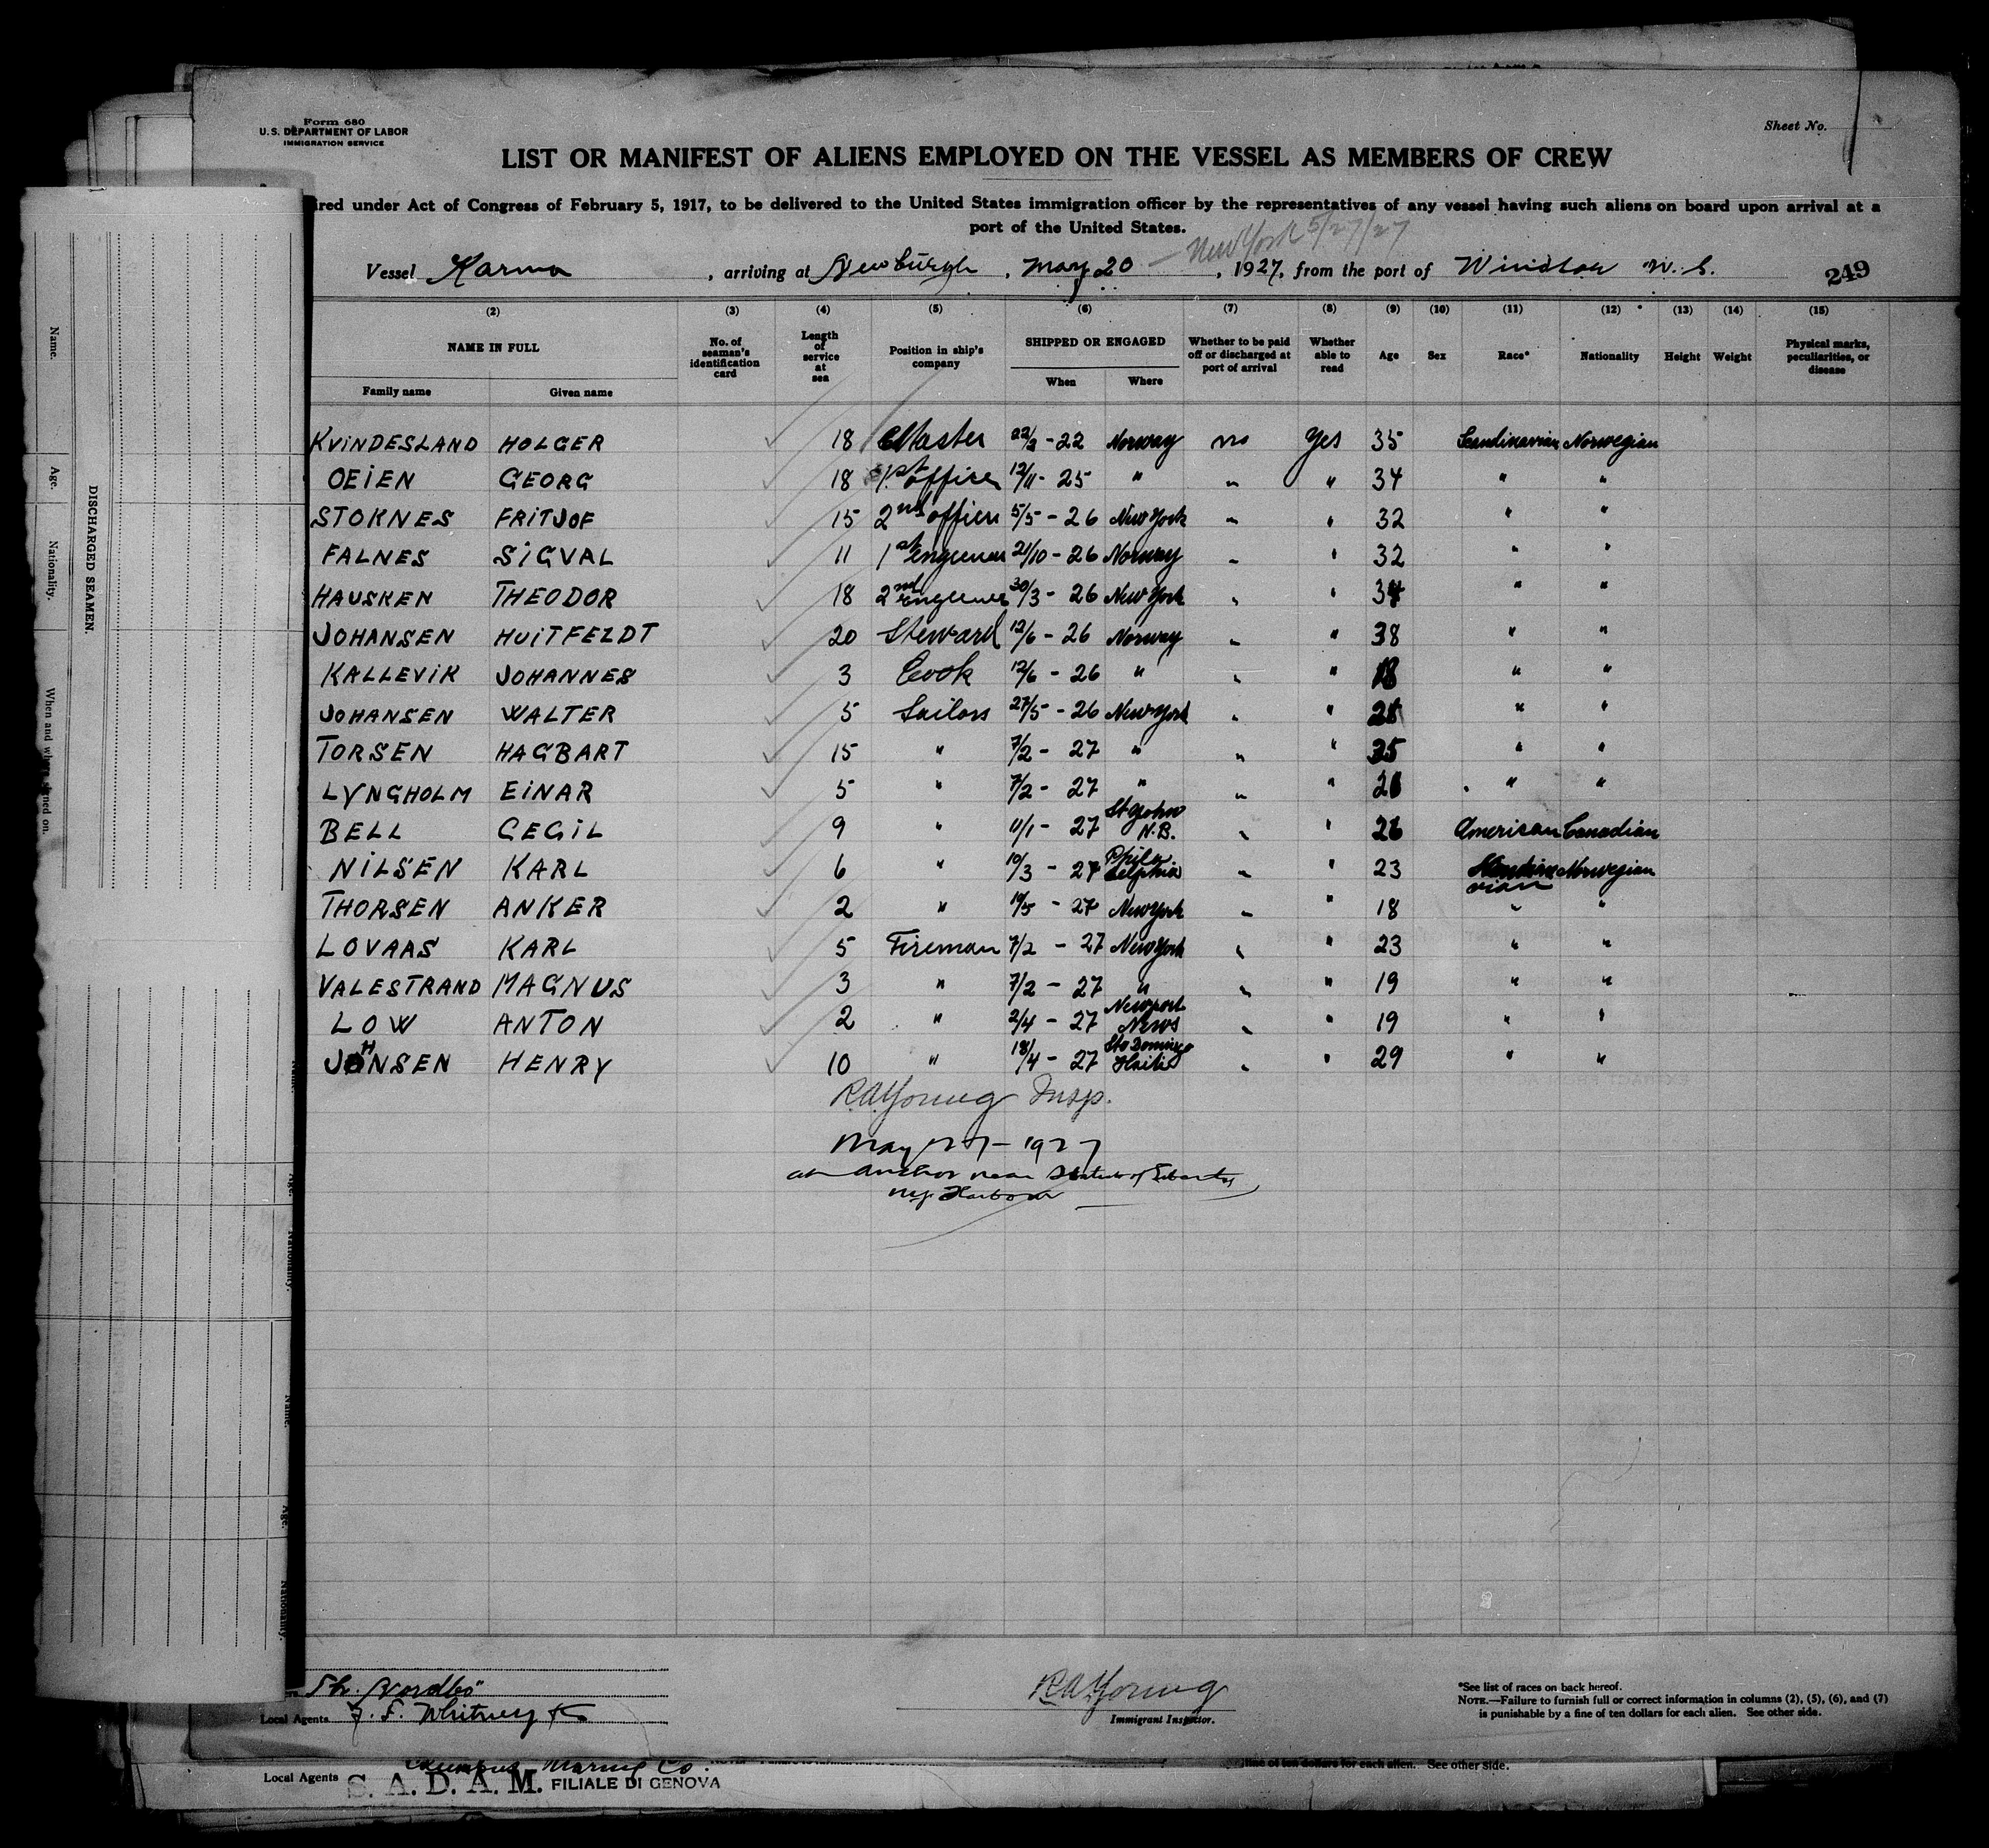 Form 680
U. S. DEPARTMENT OF LABOR
IMMIGRATION SERVICE
Sheet No.
LIST OR MANIFEST OF ALIENS EMPLOYED ON THE VESSEL AS MEMBERS OF CREW
ired under Act of Congress of February 5, 1917, to be delivered to the United States immigration officer by the representatives of any vessel having such aliens on board upon arrival at a
port of the United States.
New York 5/27/27
Vessel Karma, arriving at Newburgh, May 20, 1927, from the port of Windsor N.S.
249
(2) (3) (4) (5) (6) (7) (8) (9) (10) (11) (12) (13) (14) (15)
NAME IN FULL Family name Given name No. of seaman's identification card Length of service at sea Position in ship's company SHIPPED OR ENGAGED When Where Whether to be paid off or discharged at port of arrival Whether able to read Age Sex Race* Nationality Height Weight Physical marks, peculiarities, or disease
KVINDESLAND HOLGER 18 Master 22/3 - 22 Norway no Yes 35 Scandinavian Norwegian
OEIEN GEORG 18 1st officer 12/11 - 25 " " " 34 " "
STOKNES FRITJOF 15 2nd officer 5/5 - 26 New York " " 32 " "
FALNES SIGVAL 11 1st Engineer 21/10 - 26 Norway " " 32 " "
HAUSKEN THEODOR 18 2nd Engineer 30/3 - 26 New York " " 34 " "
JOHANSEN HUITFELDT 20 Steward 12/6 - 26 Norway " " 38 " "
KALLEVIK JOHANNES 3 Cook 12/6 - 26 " " " 18 " "
JOHANSEN WALTER 5 Sailors 27/5 - 26 New York " " " "
TORSEN HAGBART 15 " 7/2 - 27 " " " 35 " "
LYNGHOLM EINAR 5 " 7/2 - 27 " " " " "
BELL CECIL 9 " 11/1 - 27 St John N.B. " " 26 American Canadian
NILSEN KARL 6 " 10/3 - 27 Philadelphia " " 23 Scandinavian Norwegian
THORSEN ANKER 2 " 19/5 - 27 New York " " 18 " "
LOVAAS KARL 5 Fireman 7/2 - 27 New York " " 23 " "
VALESTRAND MAGNUS 3 " 7/2 - 27 " " " 19 " "
LOW ANTON 2 " 2/4 - 27 Newport News " " 19 " "
JOHNSEN HENRY 10 " 18/4 - 27 Sto Domingo Haiti " " 29 " "
R.A. Young Insp.
May 27 - 1927
at anchor near Statue of Liberty
N.Y. Harbor
Th. Nordbö
Local Agents J. F. Whitney & Co
R.A. Young
Immigrant Inspector.
*See list of races on back hereof.
NOTE.—Failure to furnish full or correct information in columns (2), (5), (6), and (7)
is punishable by a fine of ten dollars for each alien. See other side.
line of ten dollars for each alien. See other side.
Marine Co.
Local Agents S. A. D. A. M. FILIALE DI GENOVA
DISCHARGED SEAMEN.
Name.
Age.
Nationality.
When and where signed on.
Age.
Nationality.
Name.
Age.
Nationality.